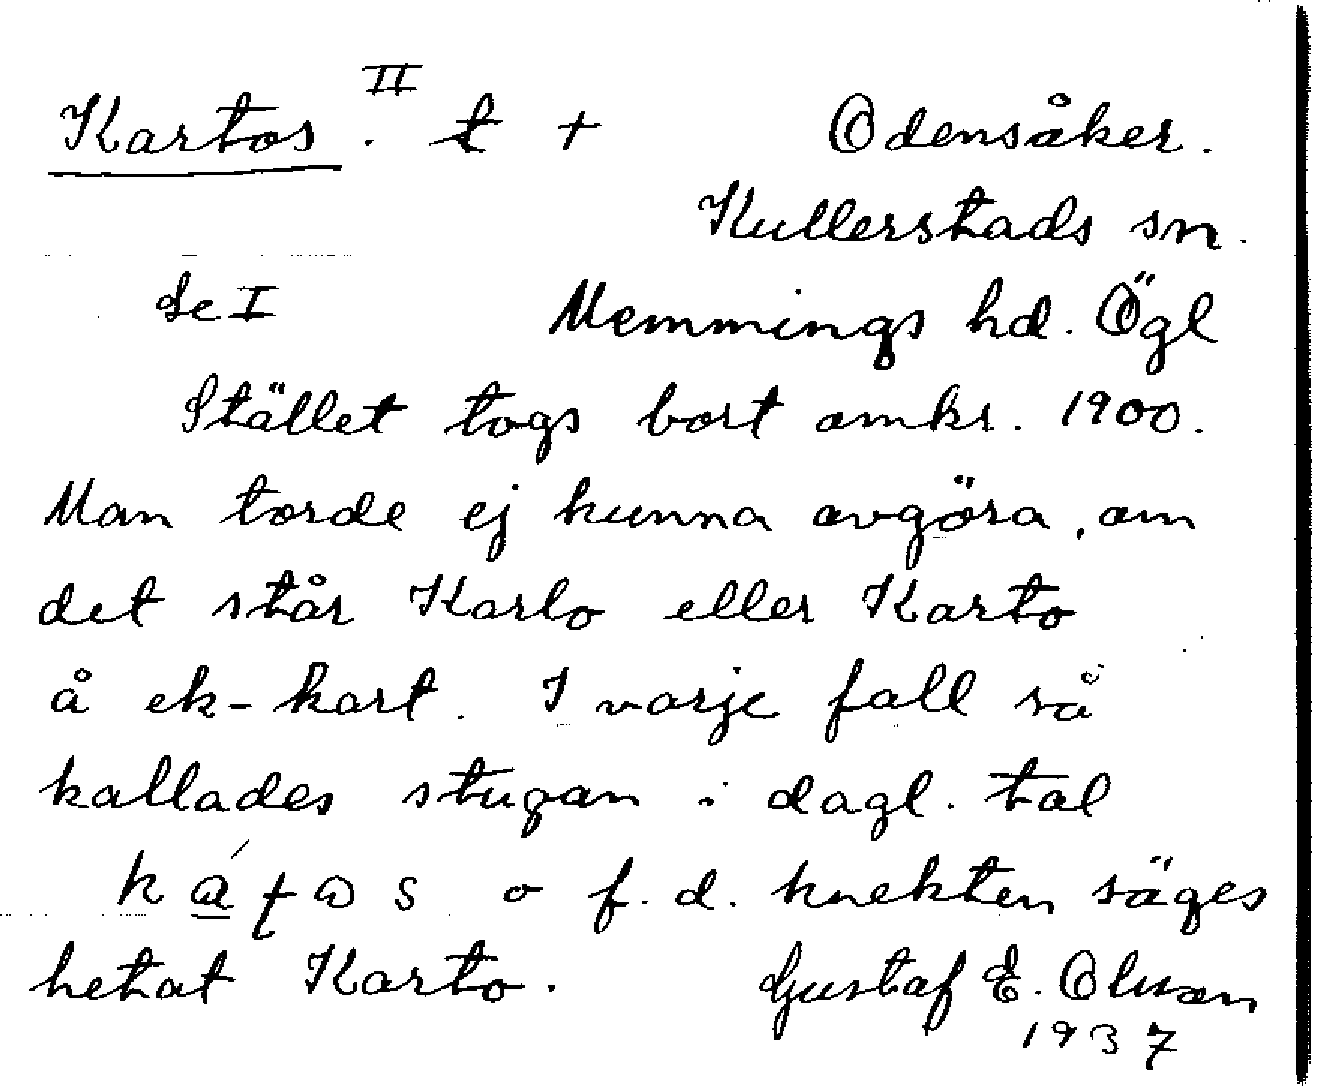 Kartos. II t + Odensåker.
Kullerstads sn.
Se I Memmings hd. Ögl
Stället togs bort omkr. 1900.
Man torde ej kunna avgöra, om
det står Karlo eller Karto
å ek-kart. I varje fall så
kallades stugan i dagl. tal
o f.d. knekten säges
hetat Karto. Gustaf E. Olsson
1937